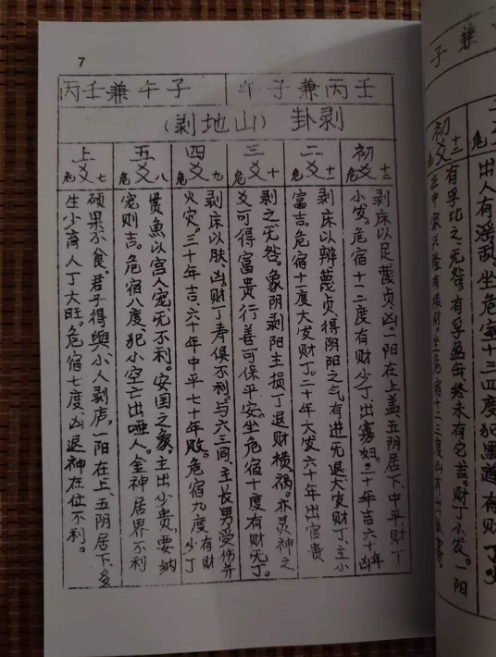 7
子午兼壬丙
壬丙兼子午
剥卦(山地剥)
初爻
危十二
剥床以足蔑贞凶。一阳在上盖五阴居下,中平,财丁
小发。危宿十二度有财少丁,出寡妇。二十年吉六十年凶
二爻
危十一
剥床以辨蔑贞,得阴阳之气有进无退大发财丁,主小
富吉。危宿十一度大发财丁。二十年大发六十年出官贵
三爻
危十
剥之无咎。象阴剥阳主损丁退财横祸。亦灵神之
爻可得富贵行善可保平安。坐危宿十度有财无丁。
四爻
危九
剥床以肤,凶。财丁寿俱不利。与六三同,主长男受伤并
火灾。三十年吉、六十年中平七十年败。危宿九度有财少丁
五爻
危八
贯鱼以宫人宠,无不利。安国之象。主出少贵,要纳
宠则吉。危宿八度、犯小空亡出哑人。金神居界不利
上爻
危七
硕果不食,君子得舆,小人剥庐。一阳在上、五阴居下、多
生少离人丁大旺。危宿七度凶退神在位不利。
子兼
初爻
危十三
有孚比之,无咎有孚盈缶,终来有它吉。财丁小发。一阳
出人有
坐危宿十四度犯黑